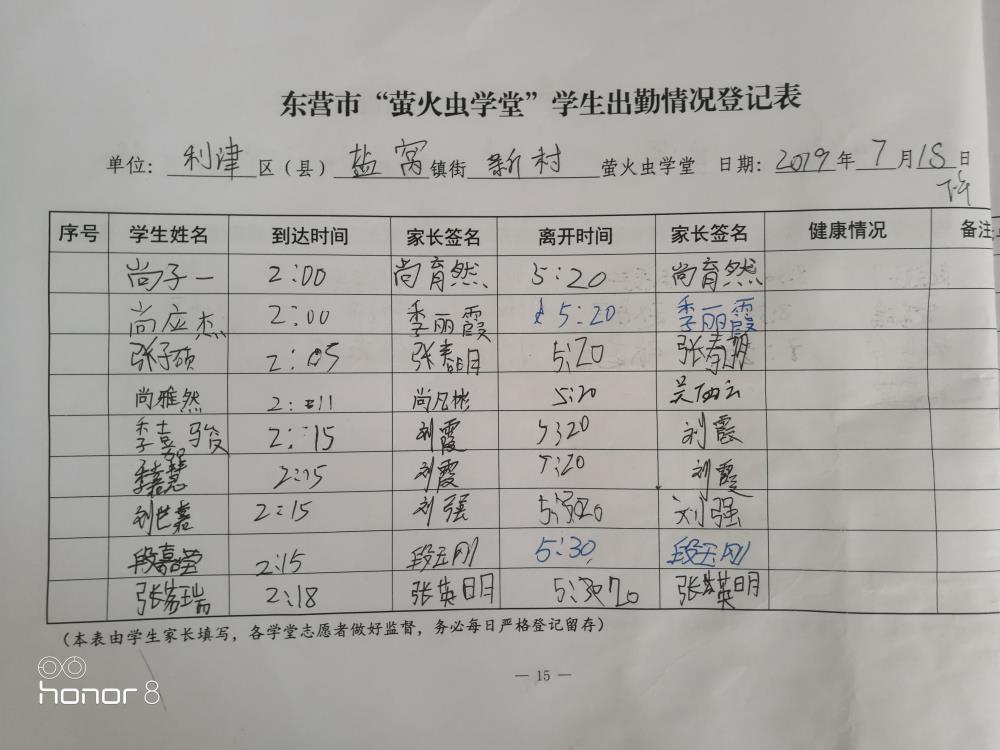 东营市“萤火虫学堂”学生出勤情况登记表
单位：利津区（县）盐窝镇街新村萤火虫学堂 日期：2019年7月18日
下午
序号 学生姓名 到达时间 家长签名 离开时间 家长签名 健康情况 备注
尚子一 2:00 尚育然 5:20 尚育然
尚应杰 2:00 季丽霞 5:20 季丽霞
张子硕 2:05 张春明 5:20 张春明
尚雅然 2:11 尚凡彬 5:20
季喜骏 2:15 刘霞 5:20 刘霞
2:15 刘霞 5:20 刘霞
刘世嘉 2:15 刘强 刘强
段嘉莹 2:15 段玉刚 5:30 段玉刚
2:18 张英明 张英明
（本表由学生家长填写，各学堂志愿者做好监督，务必每日严格登记留存）
— 15 —
honor 8